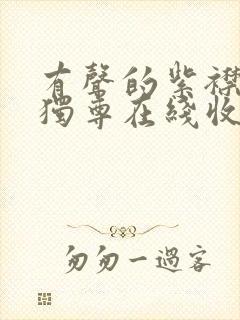 有聲的紫襟
獨尊在綫收
匆匆一過客